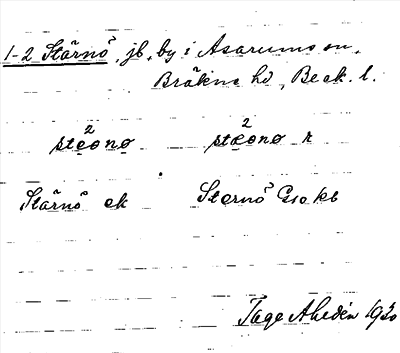 1-2 Stärnö, jb, by i Asarums sn,
Bräkne hd, Blek. l.
2 2
stæ̣onø stæ̣onø r
Stärnö ek Sternö Gsokb
Tage Ahldén 1930